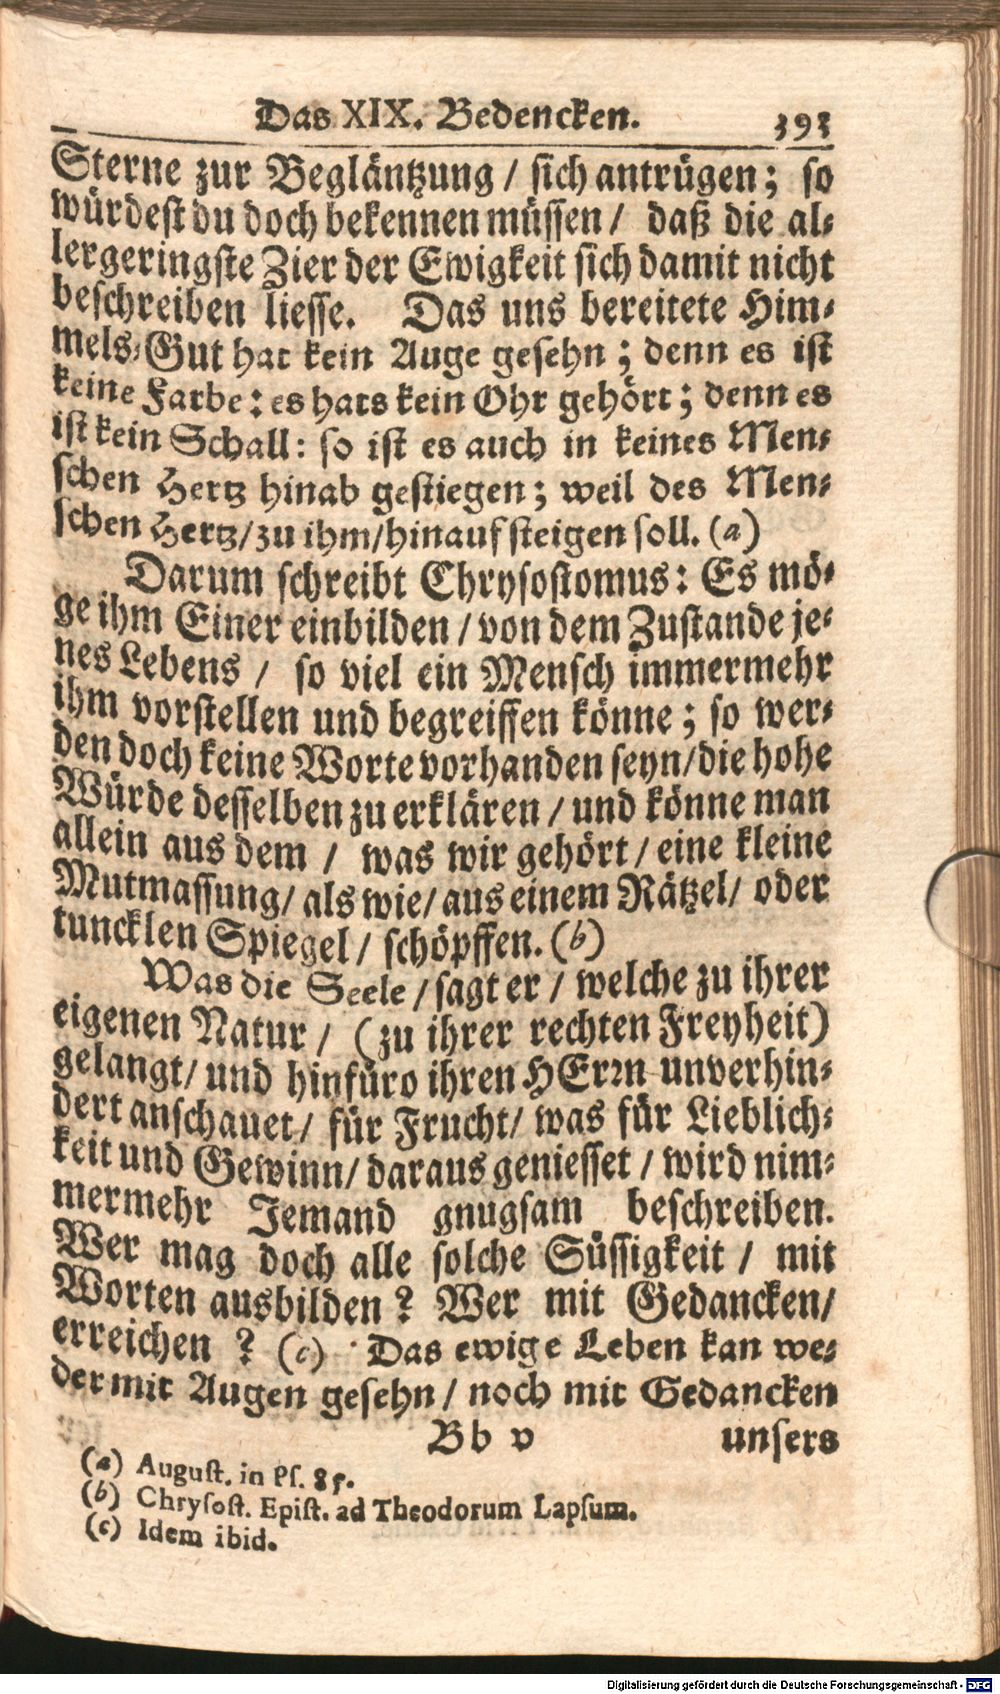 Das XIX. Bedencken. 393
Sterne zur Begläntzung / sich antrügen; so
würdest du doch bekennen müssen / daß die al-
lergeringste Zier der Ewigkeit sich damit nicht
beschreiben liesse. Das uns bereitete Him-
mels-Gut hat kein Auge gesehn; denn es ist
keine Farbe: es hats kein Ohr gehört; denn es
ist kein Schall: so ist es auch in keines Men-
schen Hertz hinab gestiegen; weil des Men-
schen Hertz/zu ihm/hinauf steigen soll. (a)
Darum schreibt Chrysostomus: Es mö-
ge ihm Einer einbilden / von dem Zustande je-
nes Lebens / so viel ein Mensch immermehr
ihm vorstellen und begreiffen könne; so wer-
den doch keine Worte vorhanden seyn/die hohe
Würde desselben zu erklären / und könne man
allein aus dem / was wir gehört / eine kleine
Mutmassung/ als wie/ aus einem Rätzel/ oder
tuncklen Spiegel / schöpffen. (b)
Was die Seele / sagt er / welche zu ihrer
eigenen Natur / (zu ihrer rechten Freyheit)
gelangt/ und hinfüro ihren HErrn unverhin-
dert anschauet/ für Frucht/ was für Lieblich-
keit und Gewinn/ daraus geniesset / wird nim-
mermehr Jemand gnugsam beschreiben.
Wer mag doch alle solche Süssigkeit / mit
Worten ausbilden? Wer mit Gedancken/
erreichen? (c) Das ewige Leben kan we-
der mit Augen gesehn / noch mit Gedancken
Bb v unsers
(a) August. in Ps. 85.
(b) Chrysost. Epist. ad Theodorum Lapsum.
(c) Idem ibid.
Digitalisierung gefördert durch die Deutsche Forschungsgemeinschaft - DFG